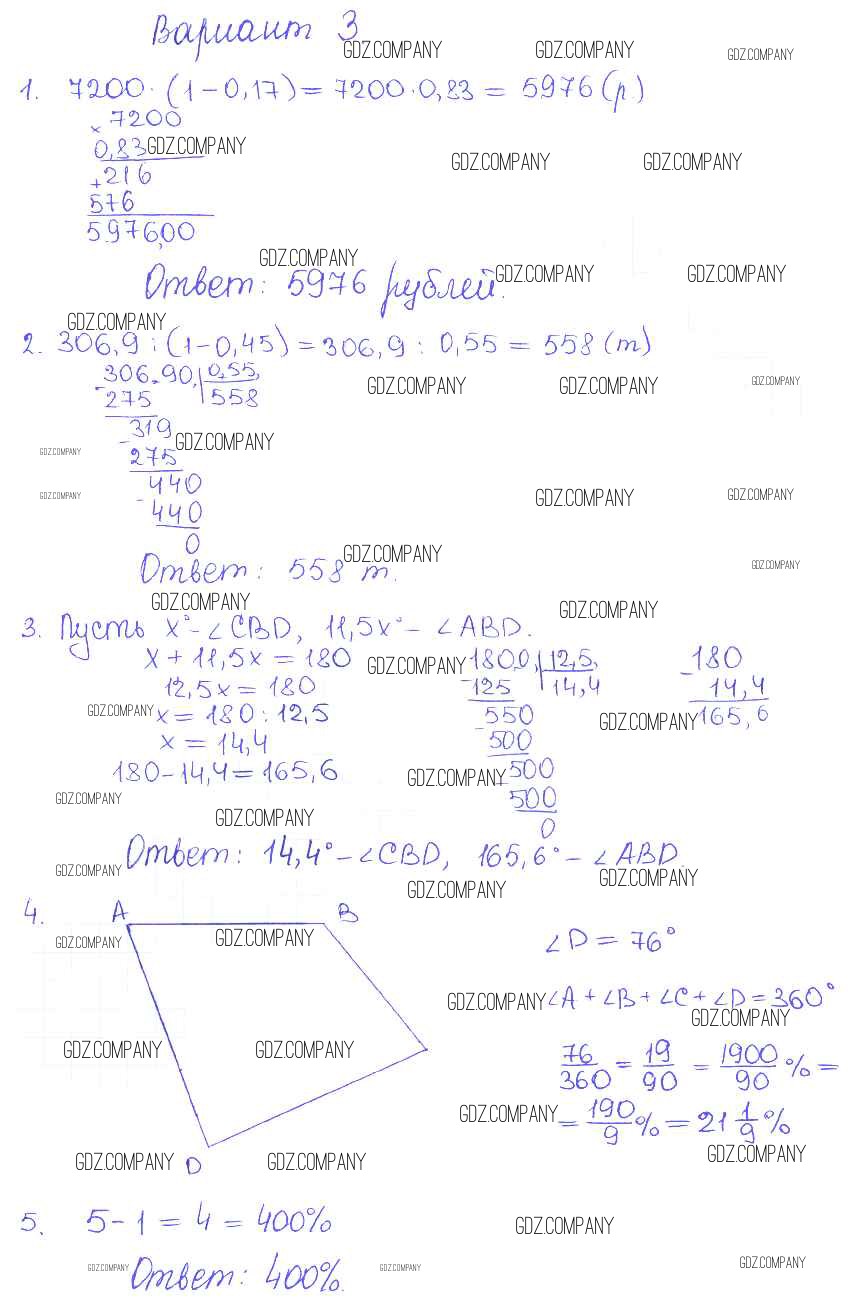 Вариант 3
GDZ.COMPANY GDZ.COMPANY GDZ.COMPANY
1. 7200·(1-0,17)=7200·0,83=5976(р)
× 7200
0,83 GDZ.COMPANY
GDZ.COMPANY GDZ.COMPANY
+216
576
5976,00
GDZ.COMPANY
Ответ: 5976 рублей.
GDZ.COMPANY GDZ.COMPANY
GDZ.COMPANY
2. 306,9:(1-0,45)=306,9:0,55=558(т)
306.90, 0,55,
-275 558
GDZ.COMPANY GDZ.COMPANY GDZ.COMPANY
-319
GDZ.COMPANY GDZ.COMPANY
275
-440
GDZ.COMPANY GDZ.COMPANY GDZ.COMPANY
440
0
GDZ.COMPANY
Ответ: 558 т.
GDZ.COMPANY
GDZ.COMPANY GDZ.COMPANY
3. Пусть х°-∠CBD, 11,5х°-∠ABD.
х+11,5х=180 GDZ.COMPANY 180,0, 12,5, -180
12,5х=180 -125 14,4 14,4
GDZ.COMPANY х=180:12,5 550 GDZ.COMPANY 165,6
х=14,4 -500
180-14,4=165,6 GDZ.COMPANY -500
GDZ.COMPANY 500
GDZ.COMPANY 0
Ответ: 14,4°-∠CBD, 165,6°-∠ABD.
GDZ.COMPANY GDZ.COMPANY GDZ.COMPANY
4. A B
GDZ.COMPANY GDZ.COMPANY ∠D=76°
GDZ.COMPANY ∠A+∠B+∠C+∠D=360°
GDZ.COMPANY
GDZ.COMPANY GDZ.COMPANY 76/360=19/90=1900/90%=
GDZ.COMPANY =190/9%=21 1/9%
GDZ.COMPANY D GDZ.COMPANY GDZ.COMPANY
5. 5-1=4=400%
GDZ.COMPANY
GDZ.COMPANY Ответ: 400%. GDZ.COMPANY GDZ.COMPANY